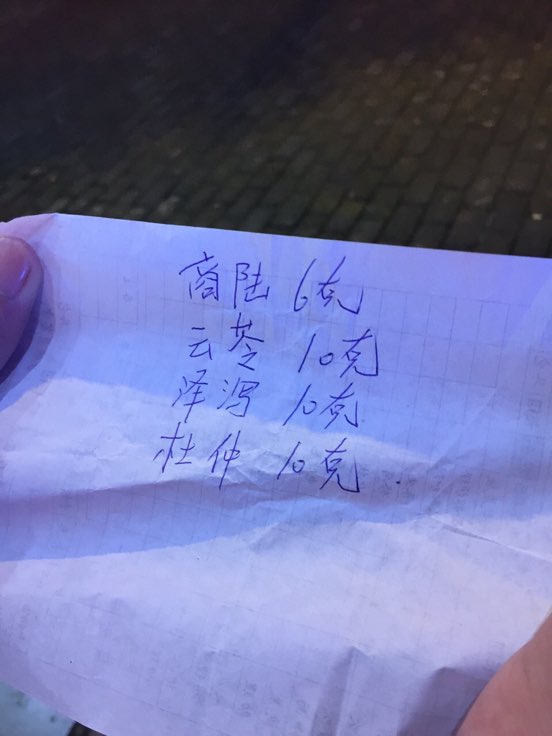 商陆 6克
云苓 10克
泽泻 10克
杜仲 10克.